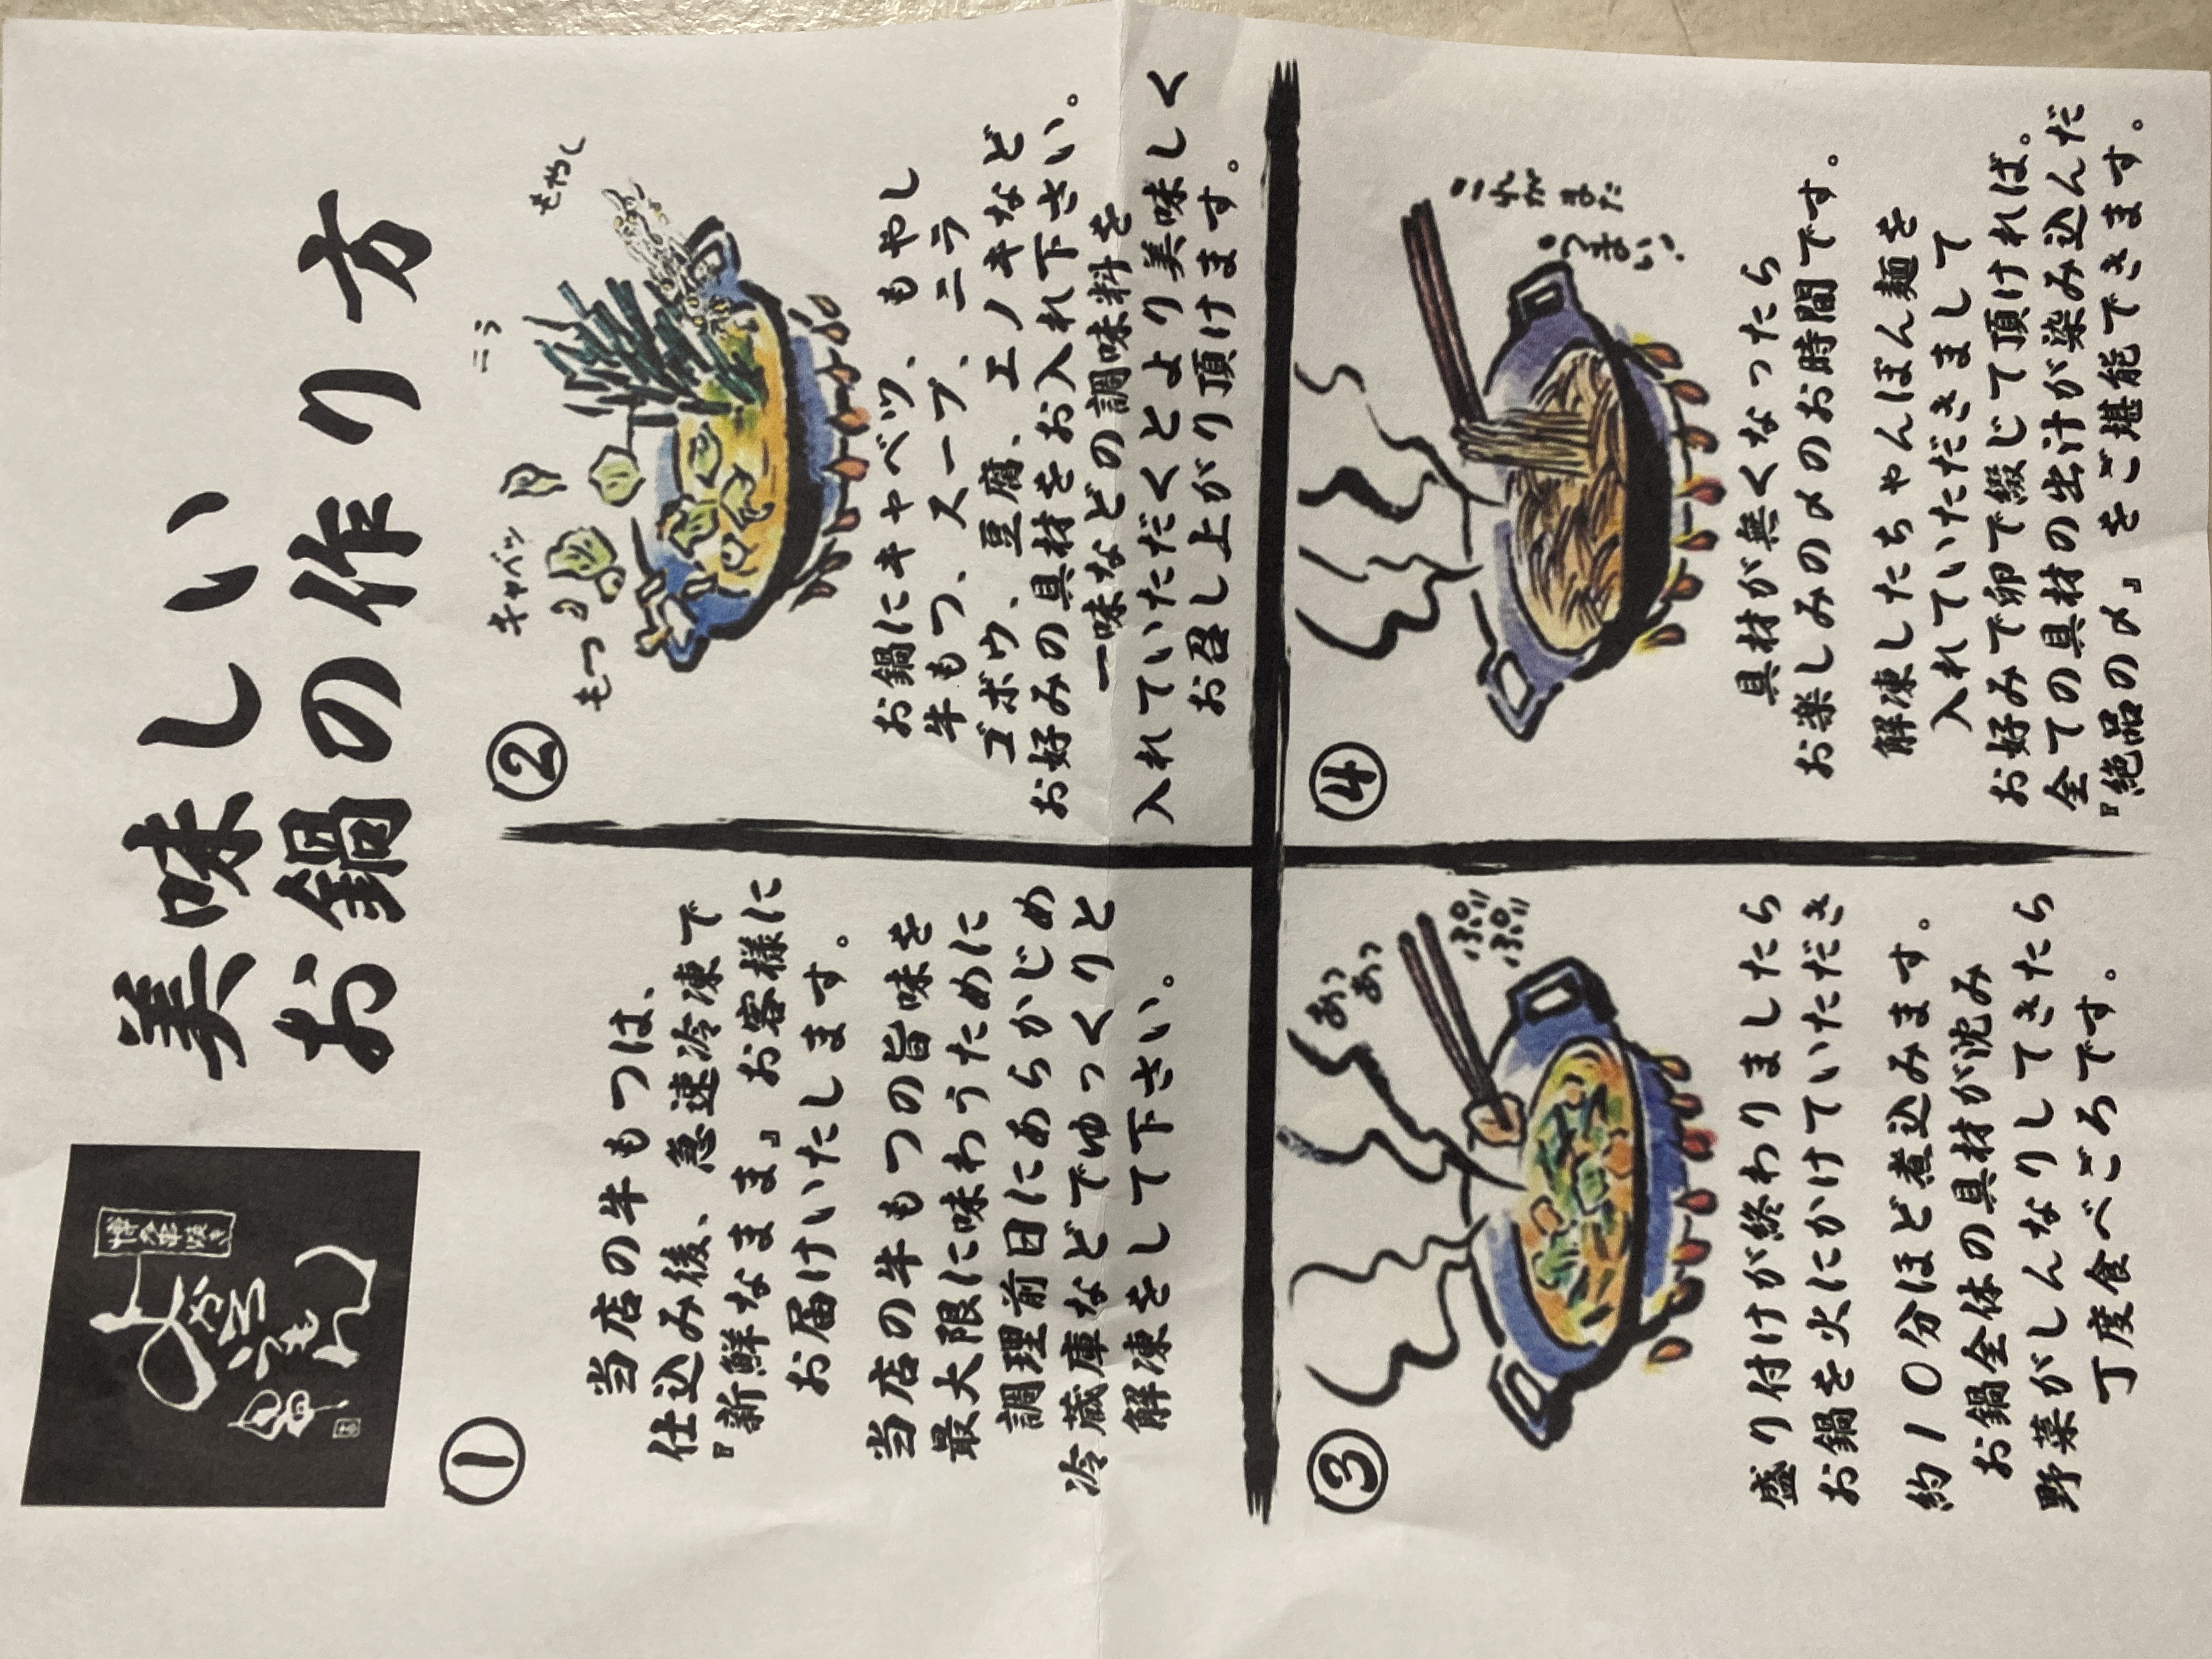 美味しい
お鍋の作り方
①
当店の牛もつは、
仕込み後、急速冷凍で
『新鮮なまま』お客様に
お届けいたします。
当店の牛もつの旨味を
最大限に味わうために
調理前日にあらかじめ
冷蔵庫などでゆっくりと
解凍をして下さい。
②
もやし
ニラ
キャベツ
もつ
お鍋にキャベツ、もやし
牛もつ、スープ、ニラ
ゴボウ、豆腐、エノキなど
お好みの具材をお入れ下さい。
一味などの調味料を
入れていただくとより美味しく
お召し上がり頂けます。
③
あっ
あっ
ぷり
ぷり
盛り付けが終わりましたら
お鍋を火にかけていただき
約10分ほど煮込みます。
お鍋全体の具材が沈み
野菜がしんなりしてきたら
丁度食べごろです。
④
これがまた
うまい
具材が無くなったら
お楽しみの〆のお時間です。
解凍したちゃんぽん麺を
入れていただきまして
お好みで卵で綴じて頂ければ。
全ての具材の出汁が染み込んだ
『絶品の〆』をご堪能できます。